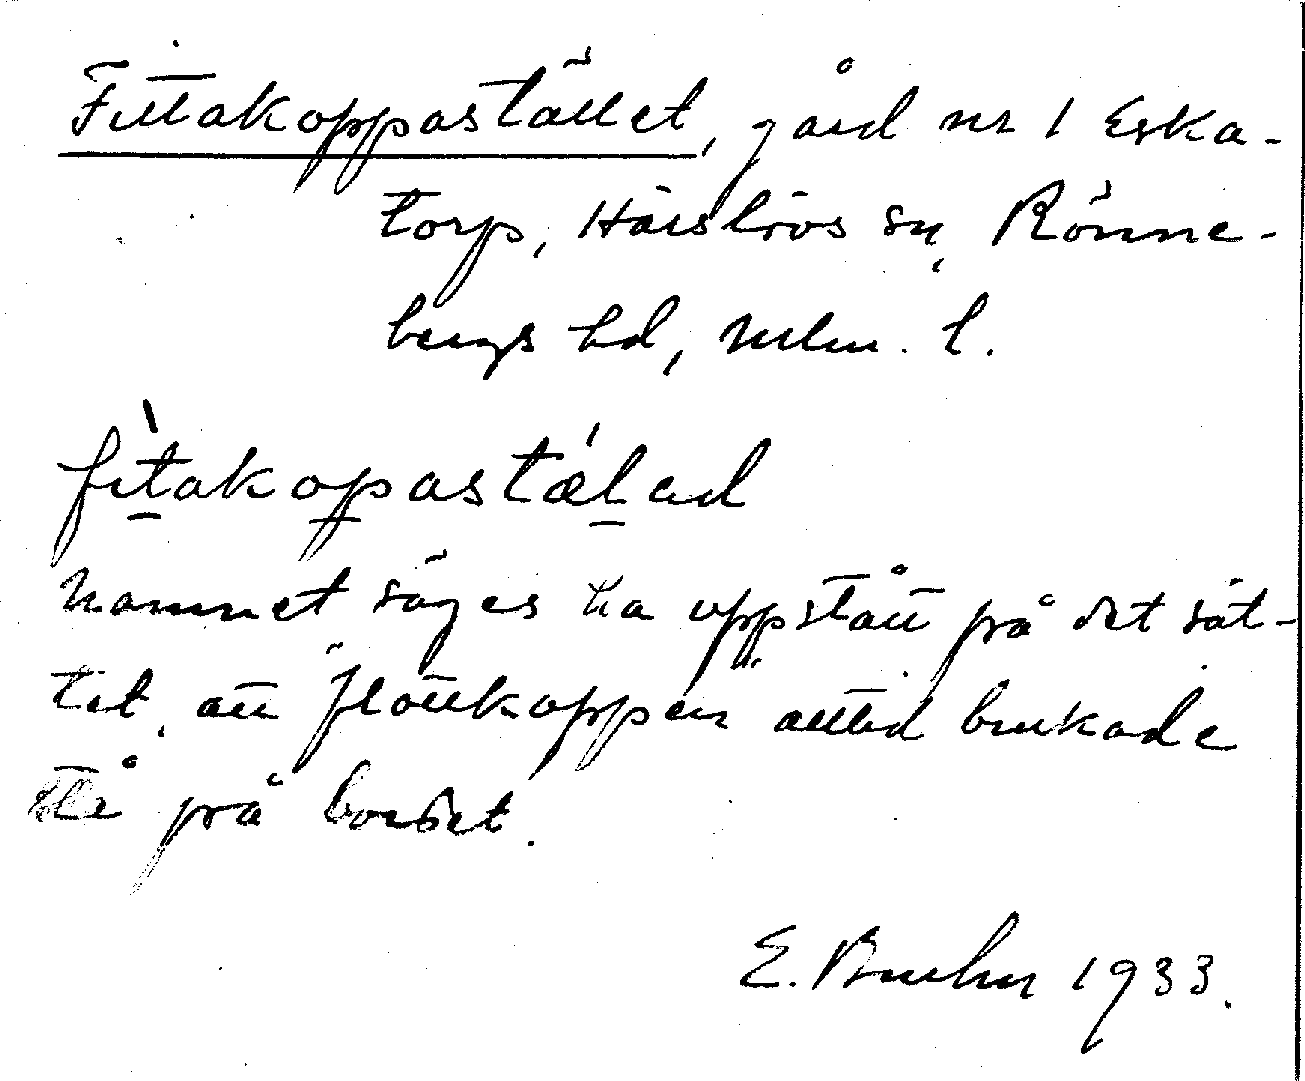 Fittakoppastället, gård nr 1 Eska-
torp, Härslövs sn, Rönne-
bergs hd, Mlm. l.
fìtakopastǽlad
Namnet säges ha uppstått på det sät-
tet, att "flottkoppen alltid brukade
stå på bordet.
E. Bruhn 1933.